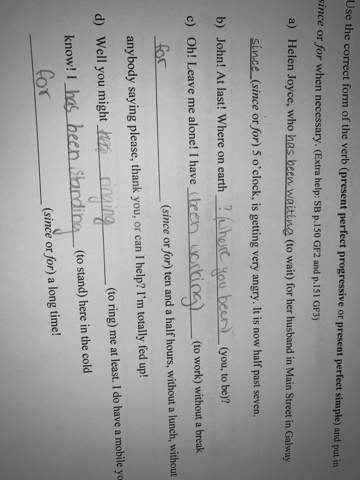 Use the correct form of the verb (present perfect progressive or present perfect simple) and put in
since or for when necessary. (Extra help: SB p.150 GF2 and p.151 GF3)
a) Helen Joyce, who has been waiting (to wait) for her husband in Main Street in Galway
since (since or for) 5 o'clock, is getting very angry. It is now half past seven.
b) John! At last! Where on earth ? (where you been) (you, to be)?
c) Oh! Leave me alone! I have (been working) (to work) without a break
for (since or for) ten and a half hours, without a lunch, without
anybody saying please, thank you, or can I help? I'm totally fed up!
d) Well you might ringing (to ring) me at least. I do have a mobile yo
know! I has been standing (to stand) here in the cold
for (since or for) a long time!